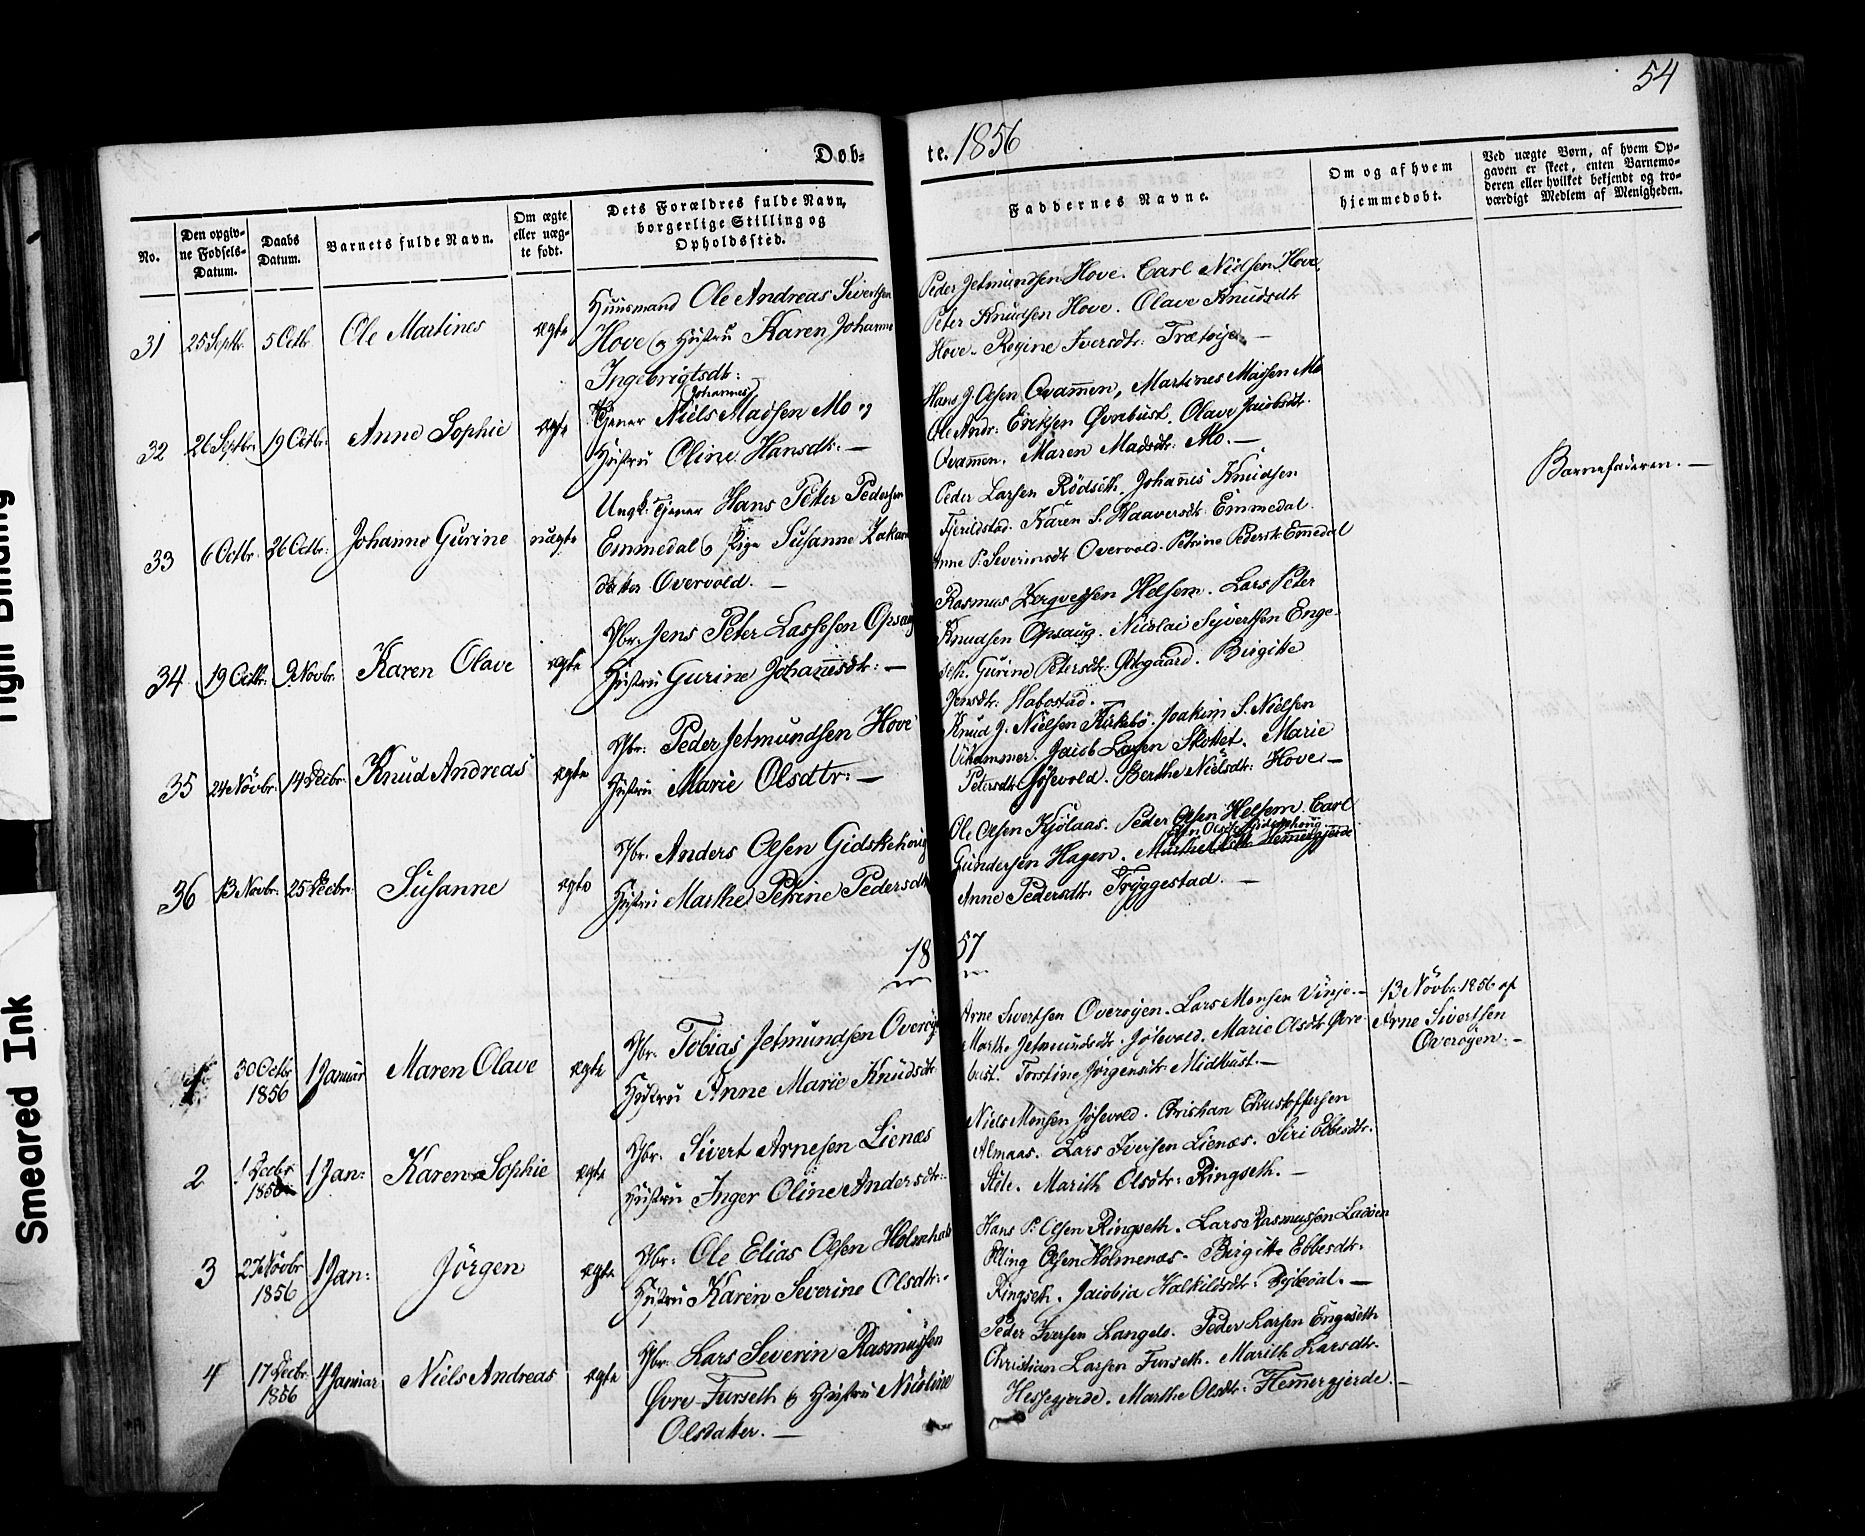 54
Døb-
te. 1856
No.
Den opgiv-
ne Fødsels-
Datum.
Daabs
Datum.
Barnets fulde Navn.
Om ægte
eller uæg-
te født.
Dets Forældres fulde Navn,
borgerlige Stilling og
Opholdssted.
Faddernes Navne.
Om og af hvem
hjemmedøbt.
Ved uægte Børn, af hvem Op-
gaven er skeet, enten Barnemo-
deren eller hvilket bekjendt og tro-
værdigt Medlem af Menigheden.
31 25 Septbr. 5 Octbr. Ole Martines ægte
Huusmand Ole Andreas Sivertsen
Hove og Hustru Karen Johanne
Ingebrigtsdtr: —
Peder Jetmundsen Hove. Carl Nielsen Hove,
Peter Knudsen Hove. Olave Knudsdtr
Hove. Regine Iversdtr: —
32 26 Septbr. 19 Octbr. Anne Sophie ægte
Johannes
Tjener Niels Madsen Mo og
Hustru Oline Hansdtr: —
Hans J. Olsen Ovamen, Martines Madsen Mo
Ole Andr: Eriksen Øvrebust. Olave Jacobsdtr.
Ovamen. Maren Madsdtr: Mo. —
33 6 Octbr. 26 Octbr: Johanne Gurine uægte
Ungk: Tjener Hans Peter Pedersen
Emmedal og Pige Susanne Zakari
datter Overvold. —
Peder Larsen Rødseth. Johannes Knudsen
Fjerildstad. Karen S. Haaversdtr: Emmedal.
Anne P. Severinsdtr Overvold. Petrine Pedersdtr Emmedal
Barnefaderen. —
34 19 Octbr. 9 Novbr. Karen Olave ægte
Gbr. Jens Peter Lassesen Opsaug
Hustru Gurine Johannsdtr: —
Rasmus Helsem. Lars Peter
Knudsen Opsaug. Nicolai Syvertsen Enge-
seth. Gurine Petersdtr: Ødegaard. Birgitte
Jensdtr: Habostad. —
35 24 Novbr. 14 Decbr. Knud Andreas ægte
Gbr: Peder Jetmundsen Hove
Hustru Marie Olsdtr: —
Knud J. Nielsen Kirkebø. Joakim S. Nielsen
Vikhammer. Jacob Larsen Skottet. Marie
Petersdtr Jøsevold. Berthe Nielsdtr: Hove. —
36 13 Novbr. 25 Decbr: Susanne ægte
Gbr. Anders Olsen Gidskehoug
Hustru Marthe Petrine Pedersdtr
Ole Olsen Kjølaas. Peder Olsen Helsem. Carl
Gundersen Hagen.
Anne Pedersdtr: Tryggestad. —
1857
1 30 Octbr 1 Januar Maren Olave ægte
1856
Gbr. Tobias Jetmundsen Overøye
Hustru Anne Marie Knudsdtr
Arne Sivertsen Overøyen. Lars Monsen Vinje. —
Marthe Jetmundsdtr: Jøsevold. Marie Olsdtr Øvre-
bust. Torstine Jørgensdtr Midtbust. —
13 Novbr. 1856 af
Arne Sivertsen
Overøyen. —
2 1 Decbr 1 Jan: Karen Sophie ægte
1856
Gbr. Sivert Arnesen Lienæs
Hustru Inger Oline Andersdtr:
Niels Monsen Jøsevold. Christian Christoffersen
Almaas. Lars Iversen Lienæs. Siri Ebbesdtr.
Støle. Marith Olsdtr: Ringseth. —
3 27 Novbr 1 Jan: Jörgen ægte
1856
Gbr: Ole Elias Olsen
Hustru Karen Severine Olsdtr:
Hans P. Olsen Ringseth. Lars Rasmussen Ladøen
Elling Olsen Holmenæs. Birgitte Ebbesdtr.
Ringseth. Jacobia Halkildsdtr: —
4 17 Decbr. 4 Januar Niels Andreas ægte
1856
Gbr. Lars Severin Rasmussen
Øvre Furseth og Hustru Nicoline
Olsdatter. —
Peder Iversen Langelo. Peder Larsen Engeseth
Christian Larsen Furseth. Marith Larsdtr.
Hessegjerde. Marthe Olsdtr: Hemmergjerde. —
Tight Binding
Smeared Ink